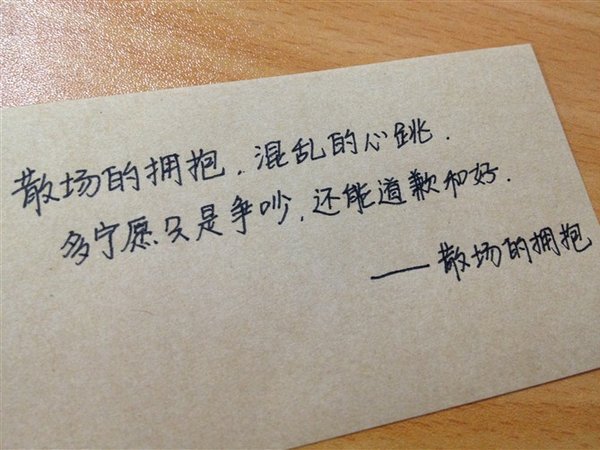 散场的拥抱,混乱的心跳.
多宁愿只是争吵,还能道歉和好.
——散场的拥抱